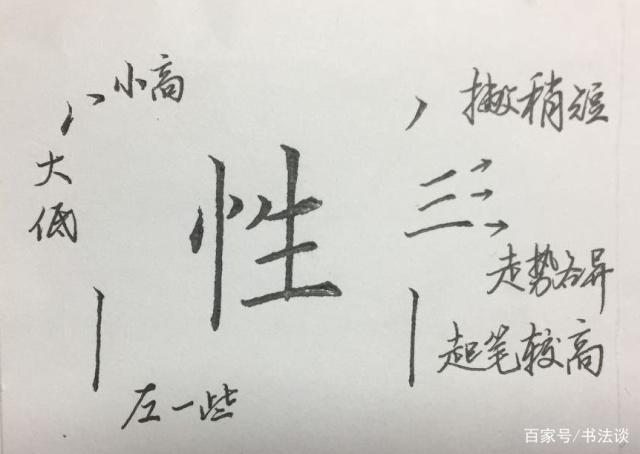 小高
大
低
左一些
性
撇稍短
走势各异
起笔较高
百家号/书法谈